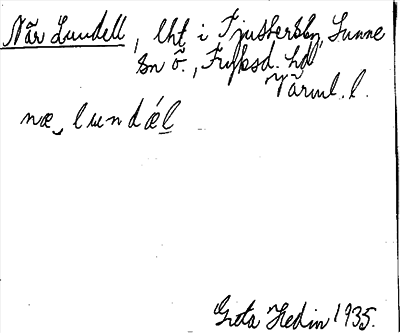 När Lundell, lht i Tjustersby, Sunne
sn ö., Fryksd. hd
Värml. l.
næ‿ lundǽl
Greta Hedin 1935.